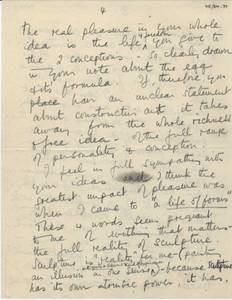 4
The real pleasure in your whole
idea is the life & you give to
the 2 conceptions. So clearly drawn
in your note about the egg
& its formula. If, therefore you
place here an unclear statement
about constructivist art it takes
away from the whole richness
& free idea - of the full range
of personality & conception.
I feel in full sympathy with
your ideas and I think the
greatest impact of pleasure was
when I came to "a life of forms"
These 4 words seem pregnant
to me of everything that matters -
the full reality of sculpture.
Sculpture is "reality" for me (paint
an illusion in one sense) - because sculpture
has its own power, it has